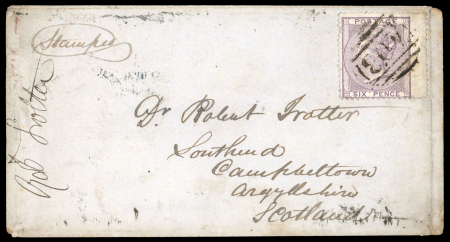 Stamped
POSTAGE
SIX PENCE
Rob Trotter
Dr Robert Trotter
Southend
Campbeltown
Argyllshire
Scotland